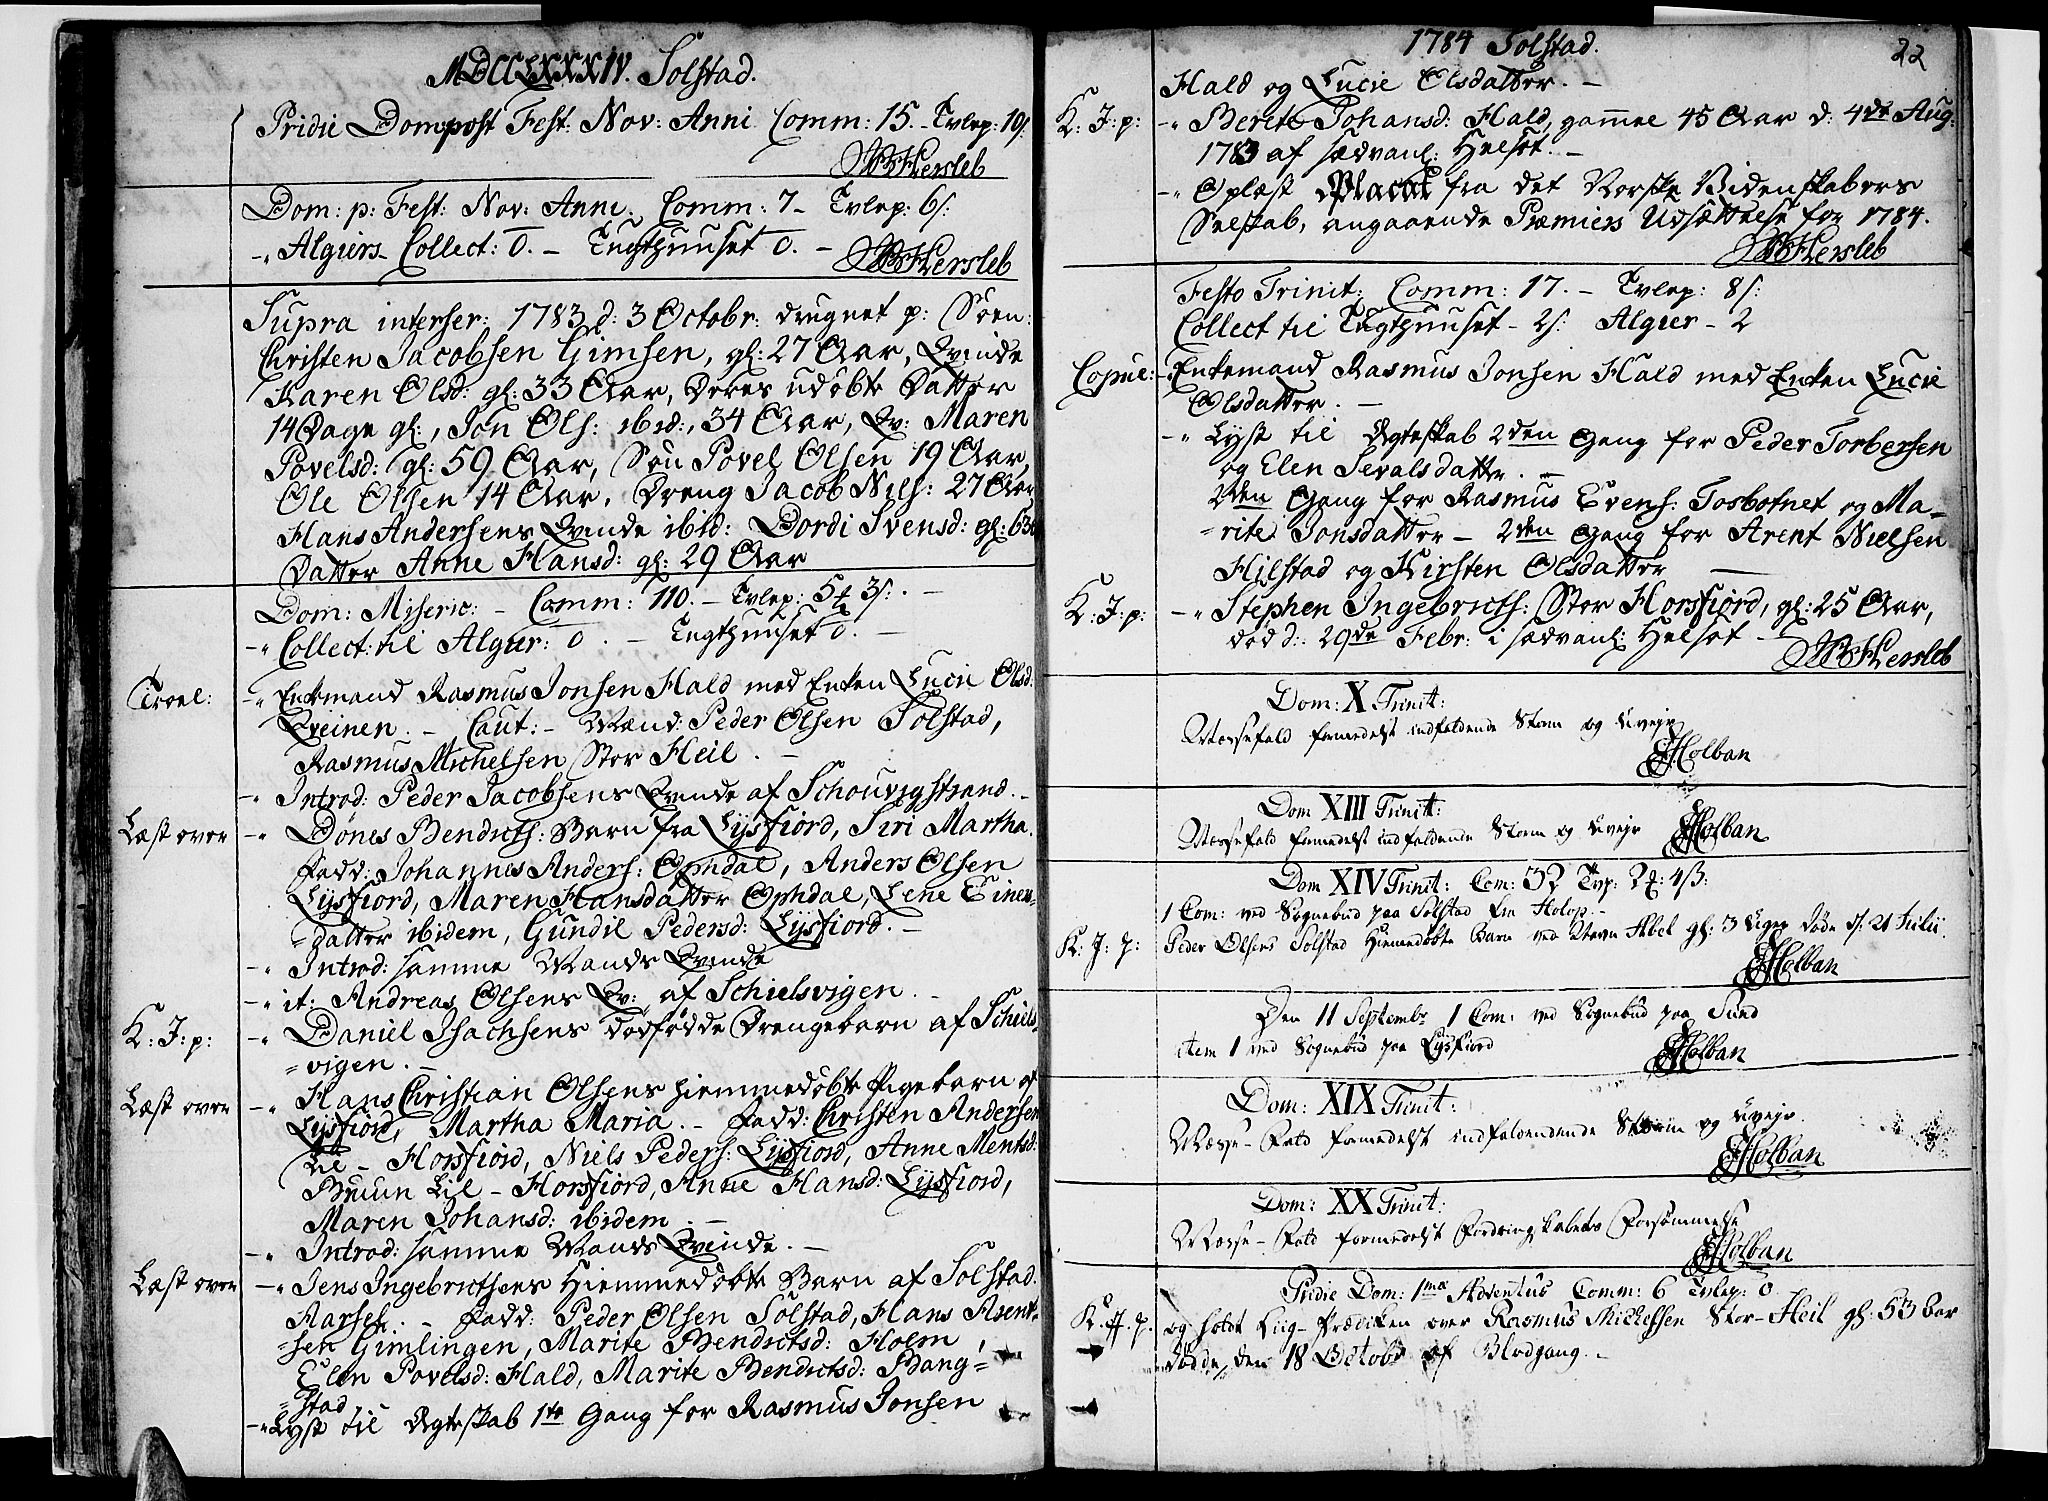 MDCCLXXXIV. Solstad.
Pridie Dom post Fest: Nov: Anni Comm: 15. - Tvlep: 19s.
HBHersleb
Dom: p: Fest: Nov: Anni. Comm: 7 - Tvlep: 6s:
-" Algiers Collect: 0. - Tugthuuset 0. -
HBHersleb
Supra inserser: 1783 d: 3 Octobr: drugnet p: Søen:
Christen Jacobsen Gimsen, gl: 27 Aar, Qvinde
Karen Olsd: gl: 33 Aar, Deres udøbte Datter
14 Dage gl:, Jon Ols: ibid:, 34 Aar, Qv: Maren
Povelsd: gl: 59 Aar, Søn Povel Olsen 19 Aar,
Ole Olsen 14 Aar, Dreng Jacob Nils: 27 Aar
Hans Andersens Qvinde ibid: Dordi Svensd: gl: 63
Datter Anne Hansd: gl: 29 Aar
Dom: Miseric: - Comm: 110. - Tvlep: 5 3s: . -
-" Collect: til Algier: 0. - Tugthuuset 0. -
Trol:
-" Enkemand Rasmus Jonsen Hald med Enken Lucie Olsd:
Qveinen. - Caut: - Mænd: Peder Olsen Solstad,
Rasmus Michelsen Stor Heil. -
-" Introd: Peder Jacobsens Qvinde af Schouvigstrand. -
Læst over
-" Dønes Bendicts: Barn fra Lysfiord, Siri Martha.
Fadd: Johannes Anders: Opdal, Anders Olsen
Lysfiord, Maren Hansdatter Ophdal, Lene Einers-
=datter ibidem, Gundil Pedersd: Lysfiord. -
-" Introd: samme Mands Qvinde
-" it: Andreas Olsens Qv: af Schielsvigen. -
K: J: p:
-" Daniel Isachsens dødfødde Drengebarn af Schiels-
=vigen. -
Læst over
-" Hans Christian Olsens hiemmedøbte Pigebarn af
Lysfiord, Martha Maria. - Fadd: Christen Andersen
Lil - Horsfiord, Niels Peders: Lysfiord, Anne Mentsd:
Bruun Lil - Horsfiord, Anne Hansd: Lysfiord,
Maren Johansd: ibidem. -
-" Introd: samme Mands Qvinde. -
Læst over
-" Jens Ingebrictsens Hiemmedøbte Barn af Solstad.
Aarsel. - Fadd: Peder Olsen Solstad, Hans Arent-
=sen Gimlingen, Marite Bendictsd: Holm
Elen Povelsd: Hald, Marite Bendictsd: Bang=
=stad
-" Lyst til Ægteskab 1te Gang for Rasmus Jonsen
1784 Solstad.
22
Hald og Lucie Olsdatter. -
K: J: p:
-" Berete Johansd: Hald, gamel 45 Aar d: 4de Aug:
1783 af sædvanl: Helsot. -
-" Oplæst Placat fra det Norske Videnskabers
Selskab, angaaende Præmiers Udsættelse for 1784.
HBHersleb
Festo Trinit: Comm: 17. - Tvlep: 8s:
Collect til Tugthuuset - 2s: Algier - 2
Copul:
-" Enkemand Rasmus Jonsen Hald med Enken Lucie
Olsdatter. -
-" Lyst til Ægteskab 2den Gang for Peder Torbersen
og Elen Sevalsdattr. -
2den Gang for Rasmus Evens: Torbotnet og Ma-
=rite Jonsdatter - 2den Gang for Arent Nielsen
Hilstad og Kirsten Olsdatter
K: J: p:
-" Stephen Ingebricts: Stor Horsfiord, gl: 25 Aar,
død d: 29de Febr: i sædvanl: Helsot -
HBHersleb
Dom: X Trinit:
Messefald formedelst indfaldende Storm og Uveyr
Holban
Dom XIII Trinit:
Messefald formedelst indfaldende Storm og Uveyr
Holban
Dom XIV Trinit: Com: 32 Tvp: 2 4s:
1 Com: ved Sognebud paa Solstad fra Holop. -
K: J: p:
Peder Olsens Solstad Hiemmedøbte Barn ved Navn Abel gl: 3 Uger døde d: 21 Julii
Holban
Den 11 Septembr 1 Com: ved Sognebud paa Sund
item 1 ved Sognebud paa Lysfiord
Holban
Dom: XIX Trinit:
Messe-Fald formedelst indfaldendende Storm og Uveyr.
Holban
Dom: XX Trinit:
Messe-Fald formedelst Fordringskabets Forsømmelse
Holban
Pridie Dom: 1ma Adventus Comm: 6 Tvlep: 0
K. J. p.
og holdt Liig-Prædiken over Rasmus Michelsen Stor-Heil gl: 53 Aar
døde den 18 Octobr af Blodgang. -